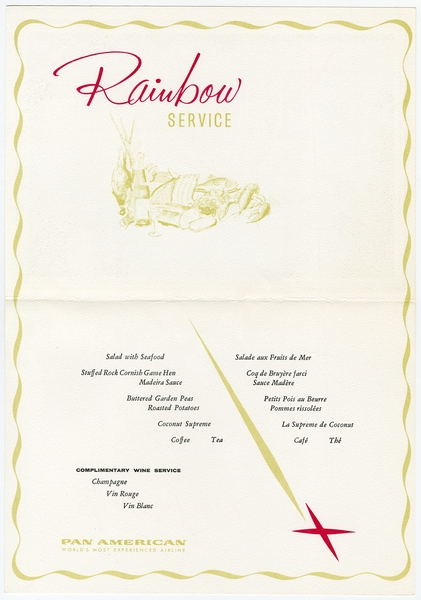 Rainbow
SERVICE
Salad with Seafood
Stuffed Rock Cornish Game Hen
Madeira Sauce
Buttered Garden Peas
Roasted Potatoes
Coconut Supreme
Coffee Tea
Salade aux Fruits de Mer
Coq de Bruyère farci
Sauce Madère
Petits Pois au Beurre
Pommes rissolées
La Supreme de Coconut
Café Thé
COMPLIMENTARY WINE SERVICE
Champagne
Vin Rouge
Vin Blanc
PAN AMERICAN
WORLD'S MOST EXPERIENCED AIRLINE